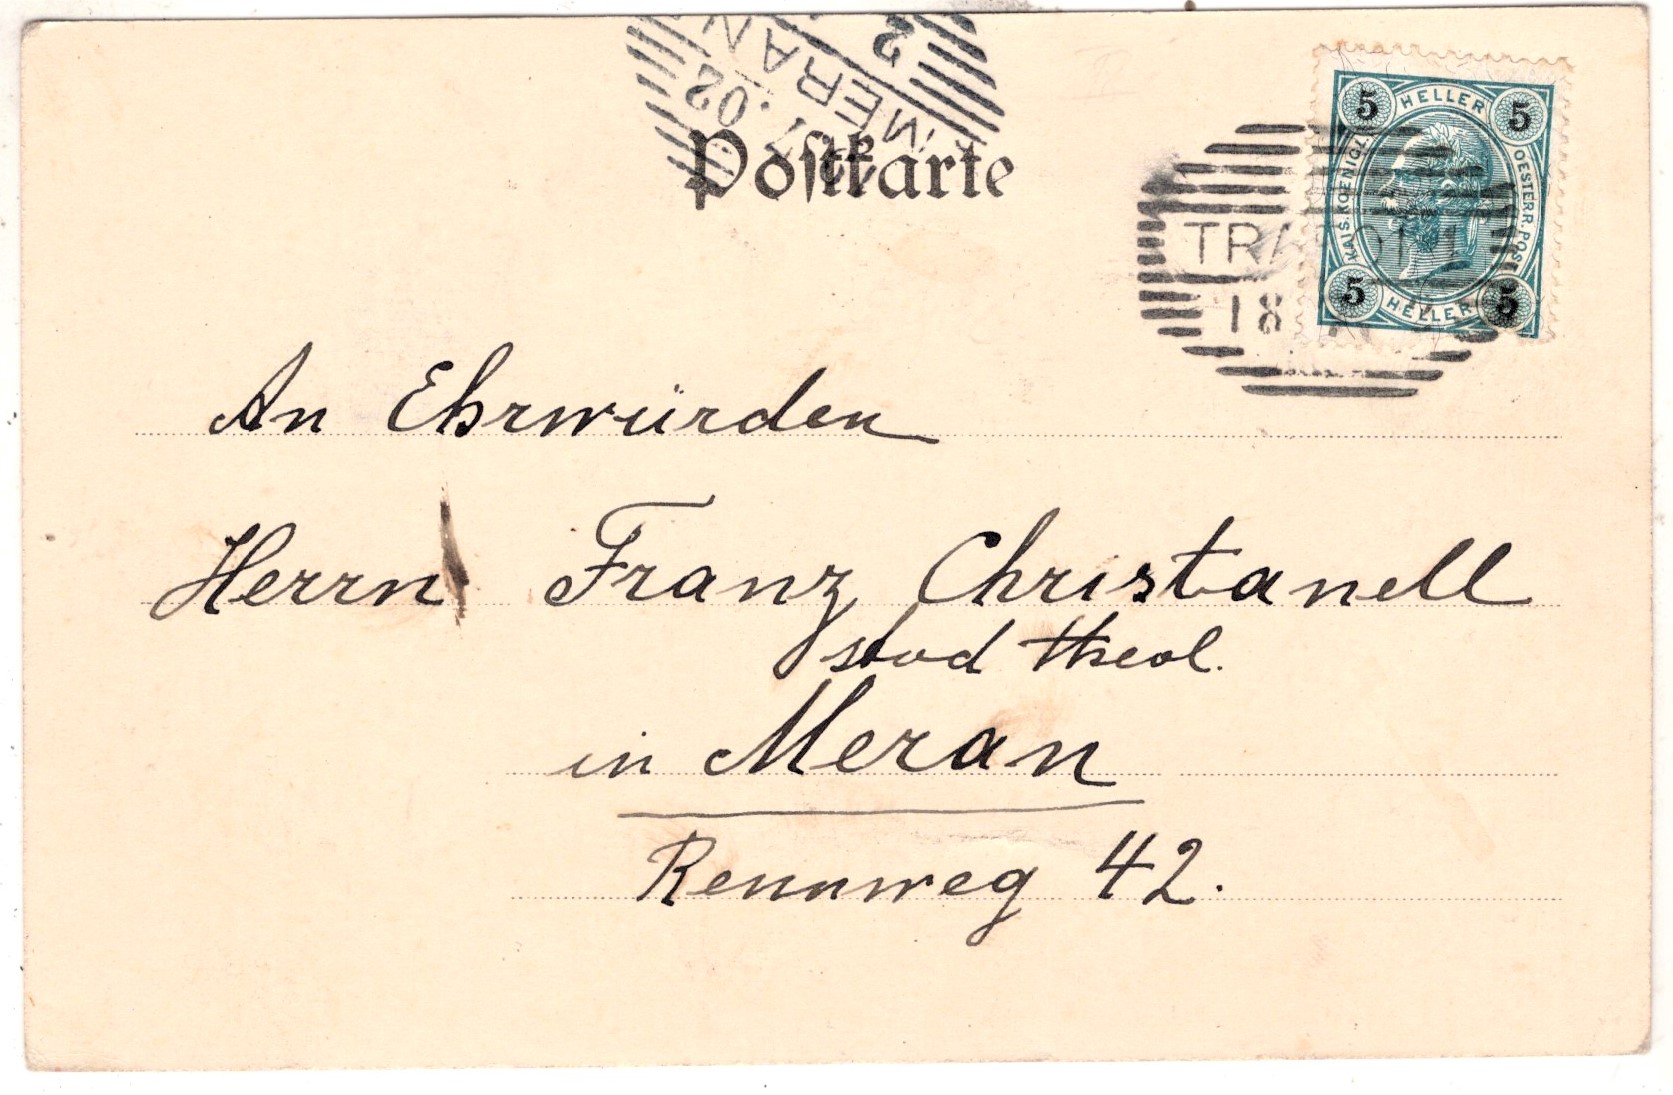 MERAN
2
7.02
MERAN
Postkarte
5 HELLER 5
KAIS. KOENIGL.
OESTERR. POST
5 HELLER 5
TRAFOI
18
An Ehrwürden
Herrn Franz Christanell
stud theol.
in Meran
Rennweg 42.